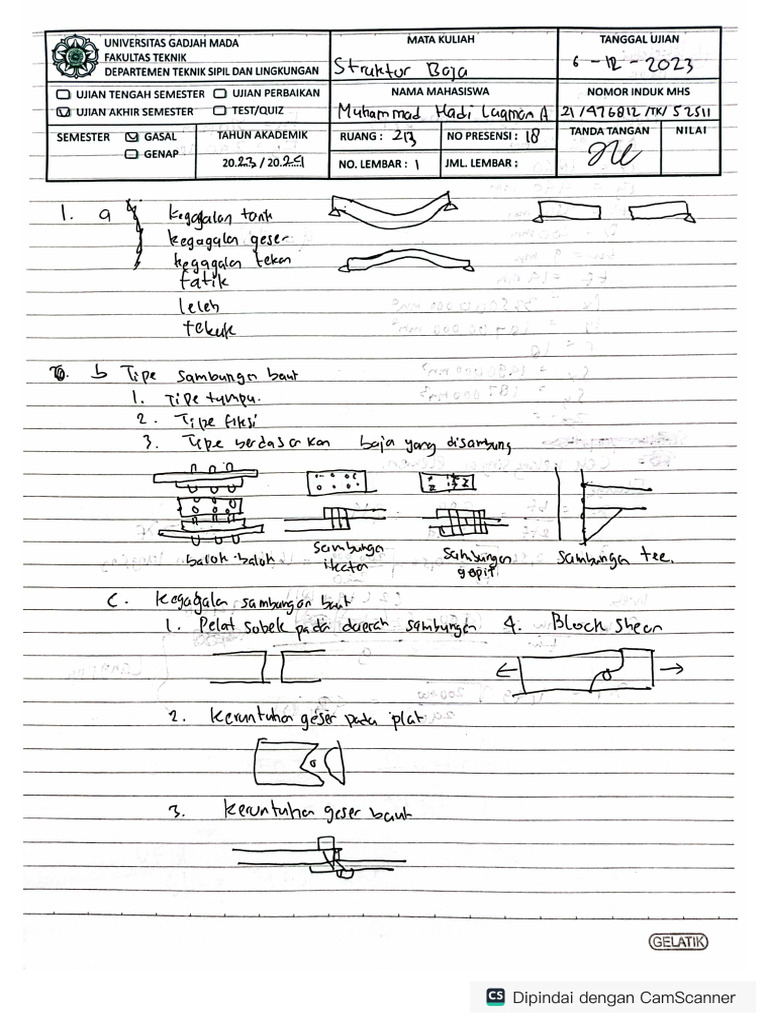 UNIVERSITAS GADJAH MADA
FAKULTAS TEKNIK
DEPARTEMEN TEKNIK SIPIL DAN LINGKUNGAN
MATA KULIAH
Struktur Baja
TANGGAL UJIAN
6 - 12 - 2023
UJIAN TENGAH SEMESTER UJIAN PERBAIKAN
UJIAN AKHIR SEMESTER TEST/QUIZ
NAMA MAHASISWA
Muhammad Hadi Luqman A
NOMOR INDUK MHS
21/476812/TK/52511
SEMESTER GASAL
GENAP
TAHUN AKADEMIK
2023/2024
RUANG : 213 NO PRESENSI : 18
NO. LEMBAR : 1 JML. LEMBAR :
TANDA TANGAN
NILAI
1. a Kegagalan tarik
kegagalan geser
kegagalan tekan
fatik
leleh
tekuk
b Tipe sambungan baut
1. Tipe tumpu.
2. Tipe fiksi
3. Tipe berdasarkan baja yang disambung
balok-balok
Sambungan
Sambungan
gapit
Sambungan tee.
C. Kegagalan sambungan baut
1. Pelat sobek pada daerah sambungan 4. Block shear
2. Keruntuhan geser pada plat
3. Keruntuhan geser baut
GELATIK
CS Dipindai dengan CamScanner